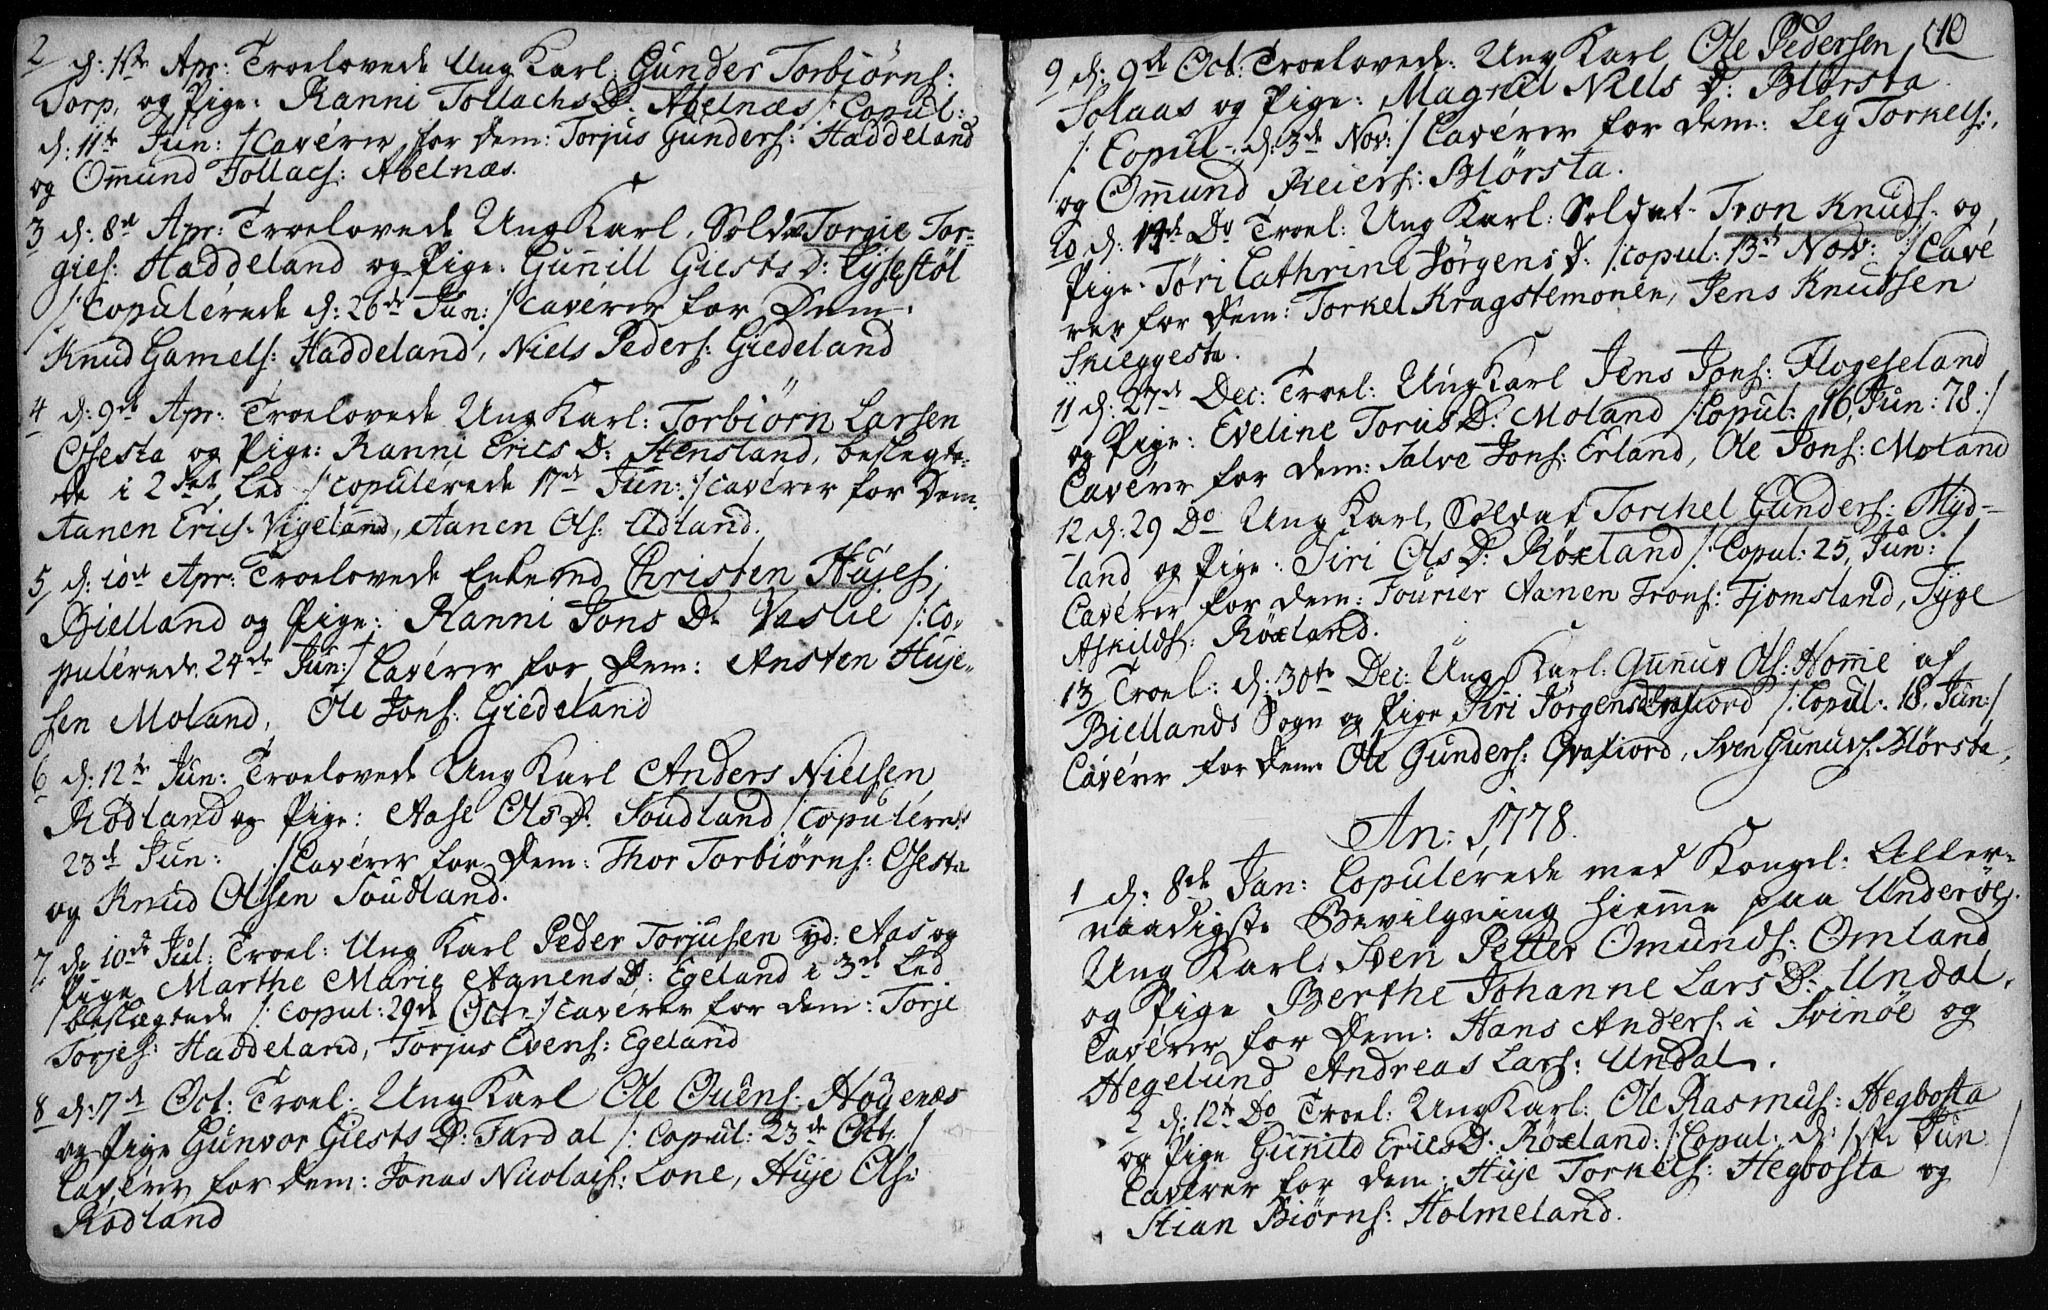 2 d: 1ste Apr: Troelovede Ung Karl: Gunder Torbiørns:
Torp, og Pige: Ranni TollachsD: Abelnæs /: Copul:
d: 11te Jun: :/ Cavérer for Dem: Torjus Gunders: Haddeland
og Om̄und Tollacs: Abelnæs.
3 d: 8de Apr: Troelovede Ung Karl, Sold: Torgie Tor-
gies: Haddeland og Pige: Gun̄ill GiestsD: Lysestøl
/: Copulérede d: 26de Jun: :/ Cavérer for Dem:
Knud Gamels: Haddeland, Niels Peders: Giedeland
4 d: 9de Apr: Troelovede Ung Karl: Torbiörn Larsen
Osesta og Pige: Ranni Erics D: Stensland, beslegte-
de i 2det Led /: copulérede 17de Jun: :/ Cavérer for Dem:
Aanen Erics: Vigeland, Aanen Ols: Udland.
5 d: 10de Apr: Troelovede Enkemd Christen Hujes:
Bielland og Pige: Ranni Jons D: Vaslie /: Co-
pulérede 24de Jun: :/ Cavérer for Dem: Ansten Huje-
sen Moland, Ole Jons: Giedeland
6 d: 12te Jun: Troelovede Ung Karl Anders Nielsen
Rödland og Pige: Aase OlsD: Soudland /: copulérede
23de Jun: :/ Cavérer for Dem: Thor Torbiörns: Osesta
og Knud Olsen Soudland.
7 d: 10de Jul: Troel: Ung Karl Peder Torjusen yd: Aas og
Pige Marthe Marie AanensD: Egeland i 3de Led
beslægtede /: Copul: 29de Oct: :/ Cavérer for dem: Torje
Torjes: Haddeland, Torjus Evens: Egeland
8 d: 7de Oct: Troel: Ung Karl Ole Ouens: Höyenæs
og Pige Gunvor Giests D: Fardal /: Copul: 23de Oct: :/
Cavérer for dem: Jonas Nicolacs: Lone, Huje Ols:
Rödland
10
9 d: 9de Oct: Troelovede: Ung Karl Ole Pedersen
Solaas og Pige: Magnil Niels D: Blørsta
/: Copul: d: 3de Nov: :/ Cavérer for dem: Leg Torkels:,
og Om̄und Reiers: Blørsta.
10 d: 14de Do Troel: Ung Karl: Soldat Tron Knuds: og
Pige: Töri Cathrine JörgensD: /: Copul: 13de Nov: :/ Cavé
rer for Dem: Torkel Kragstemonen, Jens Knudsen
Skieggesta.
11 d: 27de Dec: Troel: Ung Karl Jens Jons: Flogeseland
og Pige: Eveline ToriusD: Moland /: Copul: 16 Jun: 78 :/
Cavérer for dem: Salve Jons: Erland, Ole Jons: Moland
12 d: 29 Do Ung Karl, Soldat Torchel Gunders: Myd-
land og Pige: Siri OlsD: Röxland /: Copul: 25 Jun: :/
Cavérer for Dem: Fourier Aanen Trons: Fjomsland, Tyge
Askilds: Röxland.
13 Troel: d: 30te Dec: Ung Karl: Gunnuv Ols: Hom̄e af
Biellands Sogn og Pige Siri JörgensD: Qvafiord /: Copul: 18 Jun: :/
Cavérer for Dem Ole Gunders: Qvafiord, Sven Gunuvs: Blørsta.
An: 1778.
1 d: 8de Jan: Copulérede med Kongel: Aller-
naadigste Bevilgning hiem̄e paa Underøe,
Ung Karl: Sven Petter Omunds: Omland
og Pige Berthe Johanne LarsD: Undal,
Cavérer for Dem: Hans Anders: i Svinöe og
Hegelund Andreas Lars: Undal.
2 d: 12te Do Troel: Ung Karl: Ole Rasmus: Hegbosta
og Pige Gunild EricsD: Röxland: /: Copul: d: 1ste Jun: :/
Cavérer for dem: Huje Torkels: Hegbosta og
Stian Biörns: Holmeland.